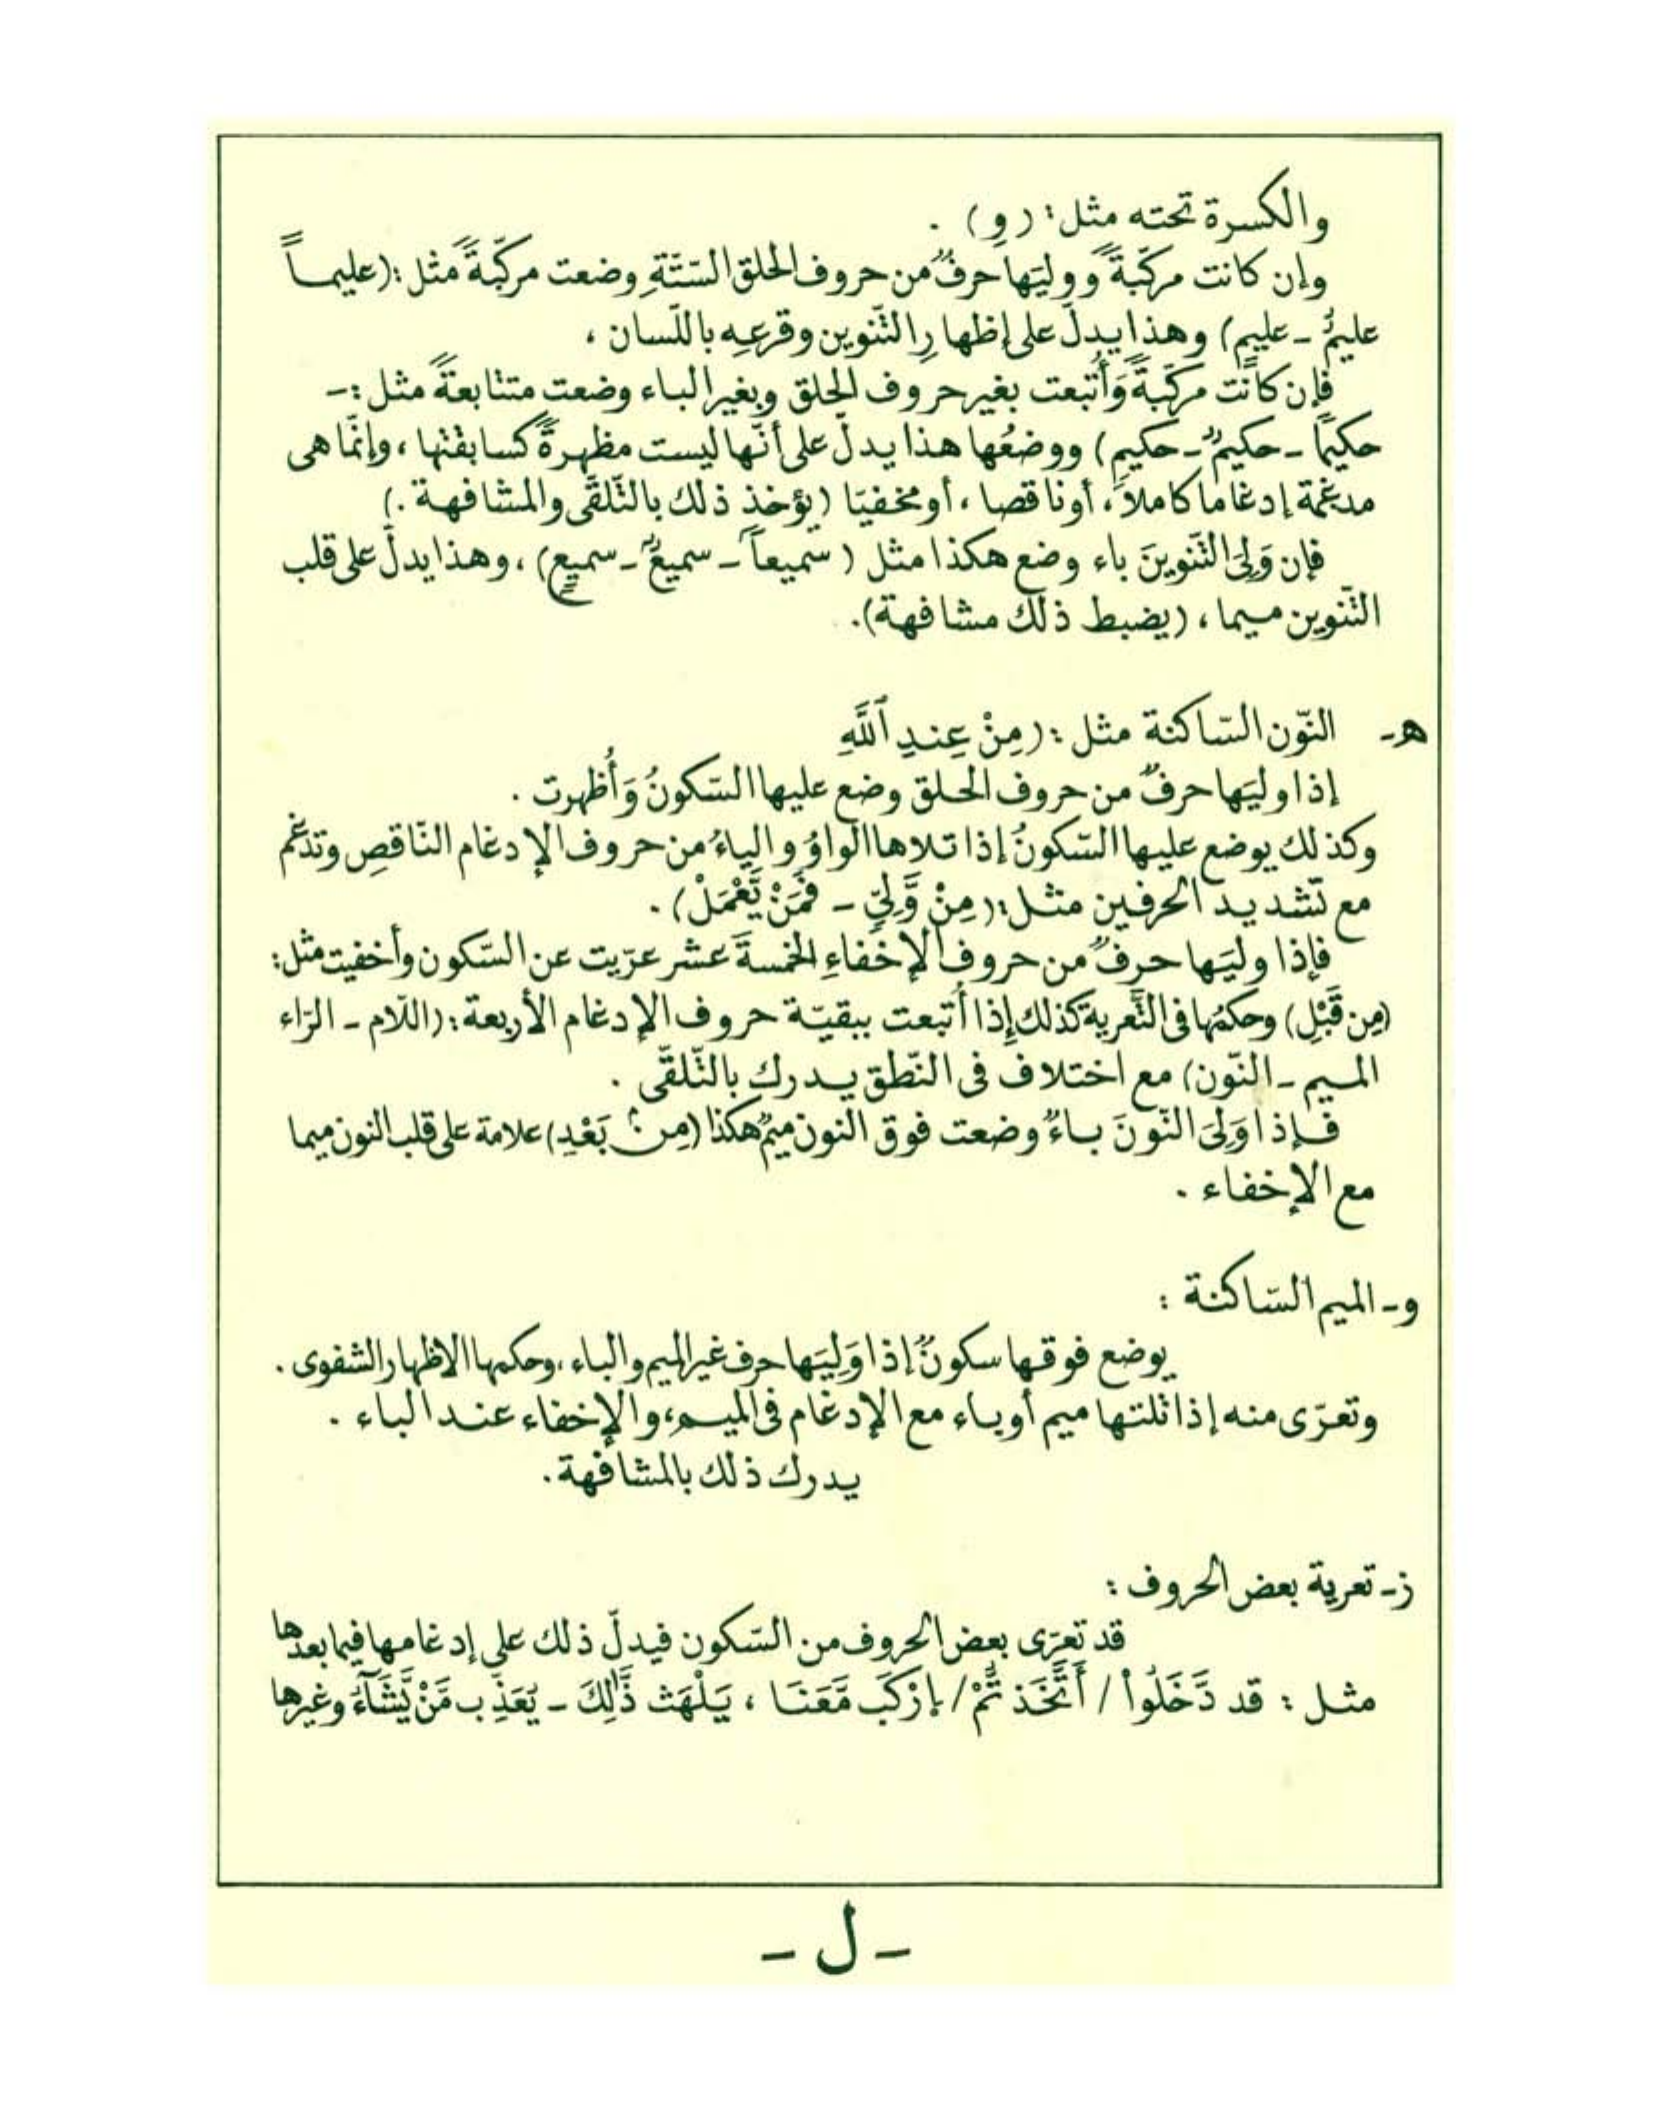 والكسرة تحته مثل: (وِ) .
وإن كانت مركّبةً ووليَها حرفٌ من حروف الحلق السّتّةِ وضعت مركّبةً مثل: (عليمـاً
عليمٌ ـ عليمٍ) وهذا يدلّ على إظهارِ التّنوين وقرعِه باللّسان ،
فإن كانت مركّبةً وَأُتبعت بغير حروف الحلق وبغير الباء وضعت متتابعةً مثل :-
حكيمًا ـ حكيمٌ ـ حكيمٍ) ووضعُها هذا يدلّ على أنّها ليست مظهرةً كسابقتها ، وإنّما هى
مدغمة إدغاما كاملاً، أوناقصا ، أومخفيّا (يؤخذ ذلك بالتّلقّى والمشافهة .)
فإن وَلِىَ التّنوينَ باء وضع هكذا مثل ( سميعاً ـ سميعٌ ـ سميعٍ) ، وهذا يدلّ على قلب
التّنوين ميما ، (يضبط ذلك مشافهة).
هـ- النّون السّاكنة مثل : (مِنْ عِندِ ٱللَّهِ
إذا وليَها حرفٌ من حروف الحلق وضع عليها السّكونُ وَأُظهرت .
وكذلك يوضع عليها السّكونُ إذا تلاها الواوُ والياءُ من حروف الإدغام النّاقصِ وتدغم
مع تشديد الحرفين مثل: (مِنْ وَّلِىٍّ ـ فَمَنْ يَّعْمَلْ) .
فإذا وليَها حرفٌ من حروف الإخفاءِ الخمسةَ عشر عرّيت عن السّكون وأخفيت مثل:
(مِن قَبْلِ) وحكمُها فى التَّعرية كذلك إِذا أُتبعت ببقيّة حروف الإدغام الأربعة: (اللّام ـ الرّاء
الميم ـ النّون) مع اختلاف فى النّطق يدرك بالتّلقّى .
فإذا وَلِىَ النّونَ باءٌ وضعت فوق النون ميمٌ هكذا (مِنۢ بَعْدِ) علامة على قلب النون ميما
مع الإخفاء .
و- الميم السّاكنة :
يوضع فوقها سكونٌ إذا وَلِيَها حرف غير الميم والباء ، وحكمها الاظهار الشفوى .
وتعرّى منه إذا تلتها ميم أوباء مع الإدغام فى الميم، والإخفاء عند الباء .
يدرك ذلك بالمشافهة.
ز- تعرية بعض الحروف :
قد تعرّى بعض الحروف من السّكون فيدلّ ذلك على إدغامها فيما بعدها
مثل : قد دَّخَلُواْ / أَتَّخَذتُّمْ / إِرْكَب مَّعَنَا ، يَلْهَث ذَّٰلِكَ ـ يُعَذِّب مَّنْ يَّشَآءُ وغيرها
- ل -